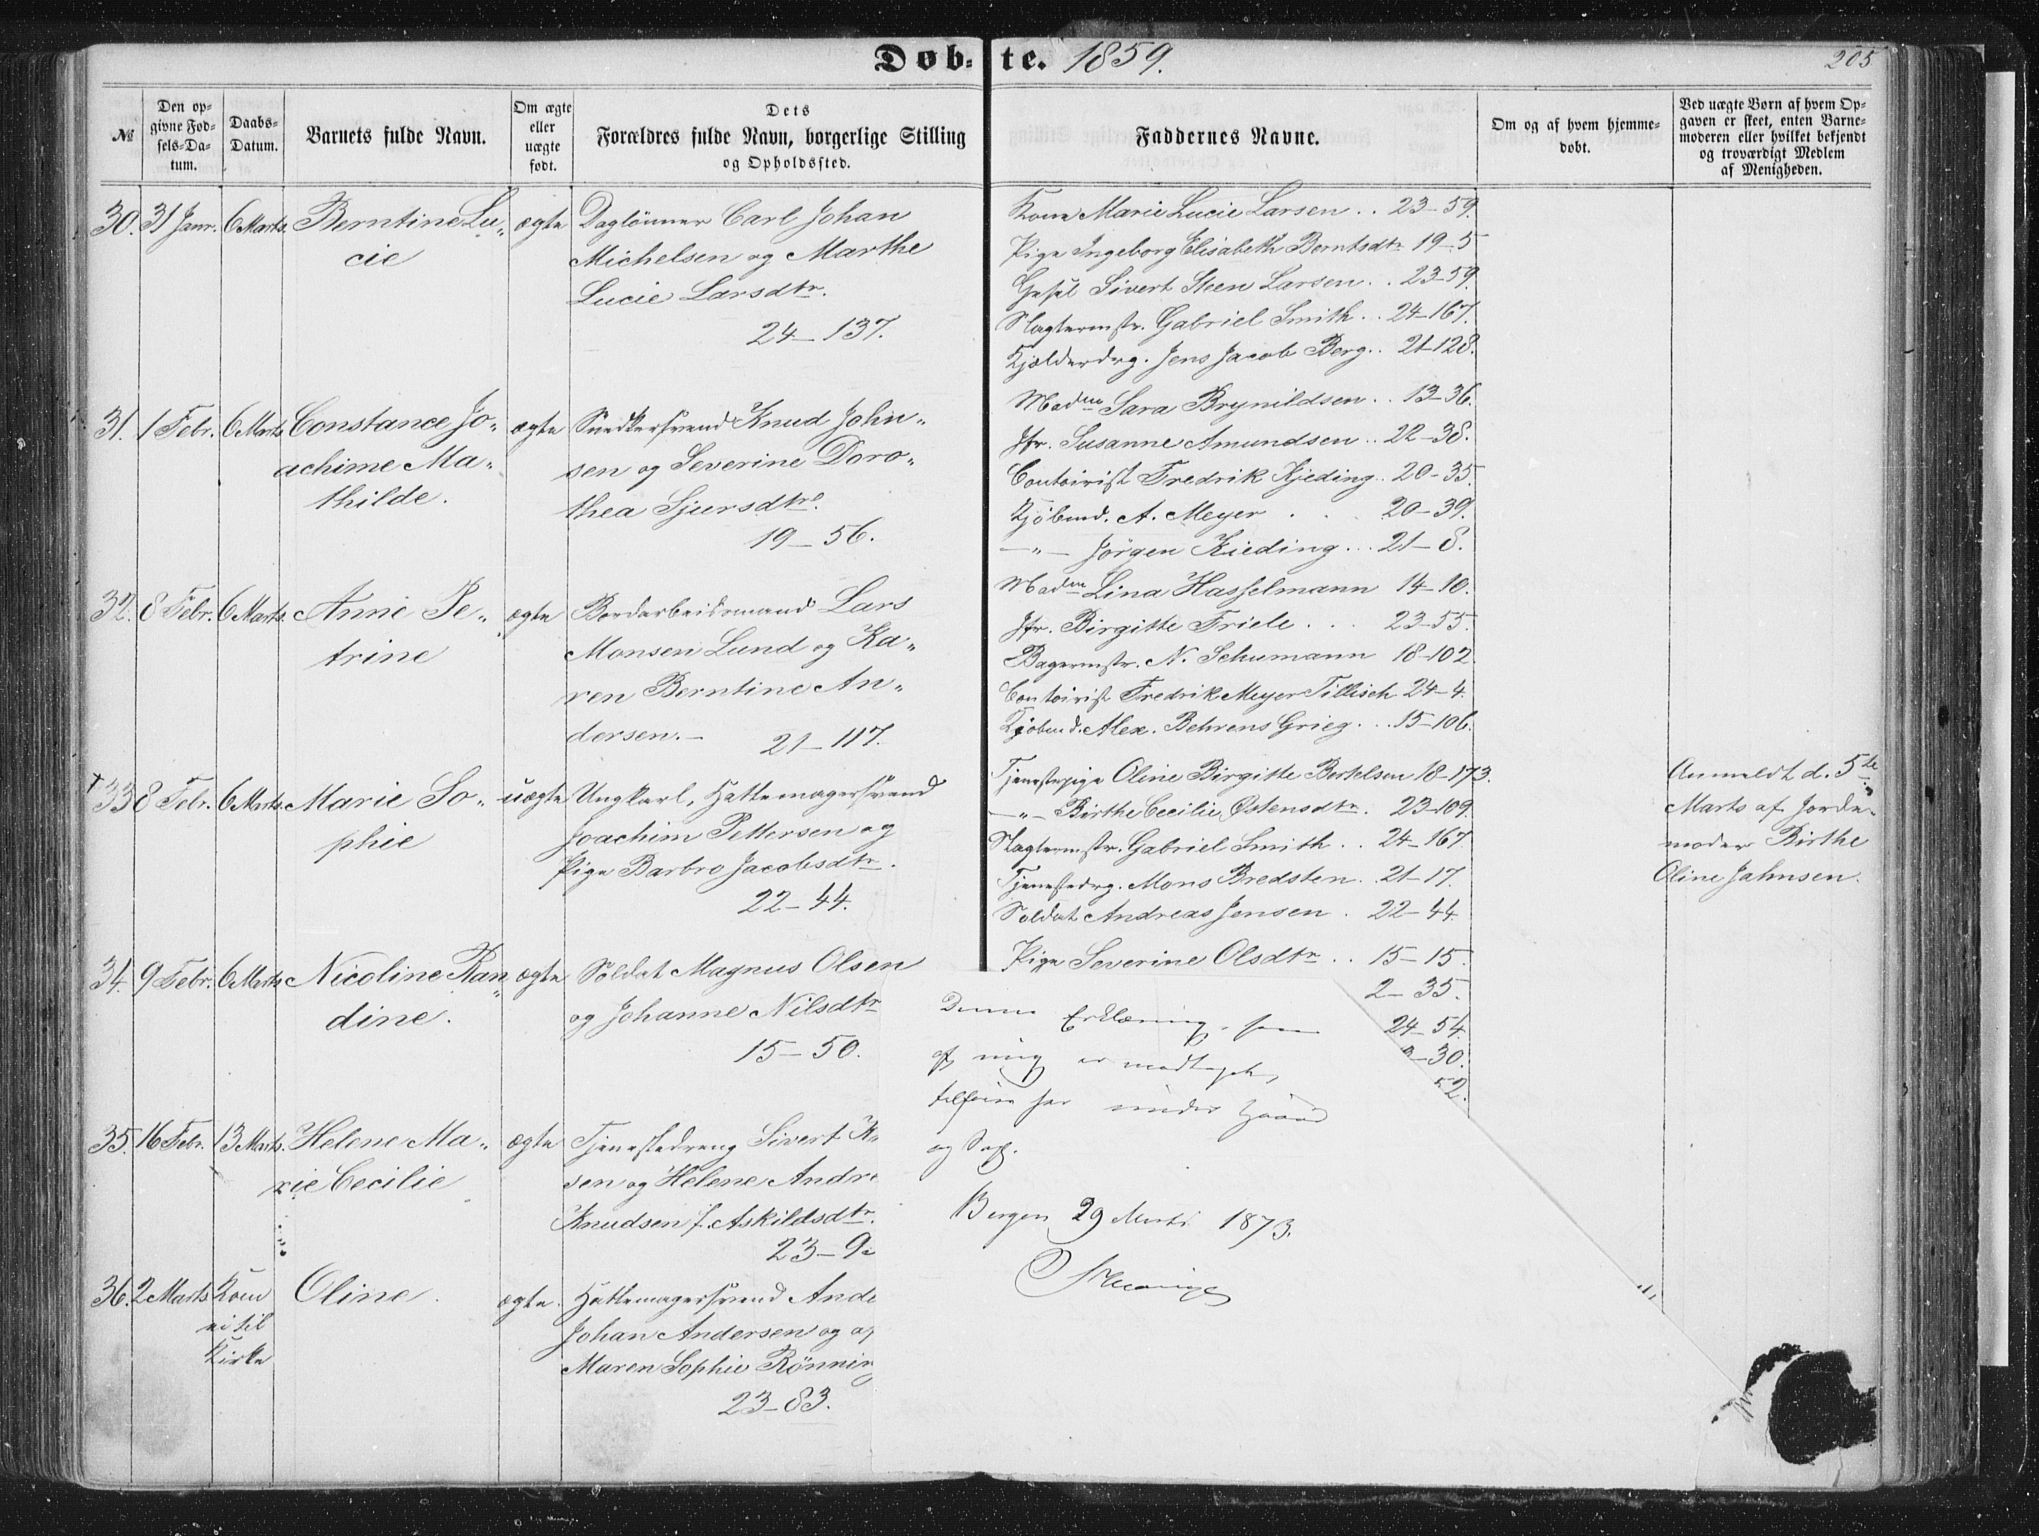 Døb- te. 1859. 205
№
Den op-
givne Fød-
sels-Da-
tum.
Daabs-
Datum.
Barnets fulde Navn.
Om ægte
eller
uægte
født.
Dets
Forældres fulde Navn, borgerlige Stilling
og Opholdssted.
Faddernes Navne.
Om og af hvem hjemme-
døbt.
Ved uægte Børn af hvem Op-
gaven er skeet, enten Barne-
moderen eller hvilket bekjendt
og troværdigt Medlem
af Menigheden.
30. 31 Janr. 6 Marts. Berntine Lu-
cie
ægte
Daglønner Carl Johan
Michelsen og Marthe
Lucie Larsdtr.
24-137.
Kone Marie Lucie Larsen .. 23-59.
Pige Ingeborg Elisabeth Berntsdtr 19-5
Gesel Sivert Steen Larsen .. 23-59.
Slagtermstr. Gabriel Smith .. 24-167.
Kjælderdrg. Jens Jacob Berg .. 21-128.
31. 1 Febr. 6 Marts Constance Jo-
achime Ma-
thilde.
ægte
Snedkersvend Knud John-
sen og Severine Doro-
thea Sjursdtr.
19-56.
Madm Sara Brynildsen .. 13-36.
Jfr. Susanne Amundsen .. 22-38.
Contoirist Fredrik Kjeding .. 20-35.
Kjøbmd. A. Meyer . . 20-39.
-"- Jørgen Kieding ... 21-8.
32. 8 Febr. 6 Marts. Anne Pe-
trine
ægte
Bordarbeidsmand Lars
Monsen Lund og Ka-
ren Berntine An-
dersen.-
21-117.
Madm Lina Hasselmann 14-10.
Jfr. Birgitte Friele . . . 23-55.
Bagermstr. N. Schumann 18-102.
Contoirist Fredrik Meyer Tillisch 24-4.
Kjøbmd. Alex. Behrens Grieg ... 15-106.
+33 8 Febr. 6 Marts Marie So-
phie
uægte
Ungkarl, Hattemagersvend
Joachim Pettersen og
Pige Barbro Jacobsdtr.
22-44.
Tjenestepige Oline Birgitte Bertelsen 18-173.
-"- Birthe Cecilie Østensdtr. 23-109.
Slagtermstr. Gabriel Smith .. 24-167
Tjenestedrg. Mons Bredsten . 21-17.
Soldat Andreas Jensen . 22-44.
Anmeldt d. 5te
Marts af Jorde-
moder Birthe
Oline Jahnsen.
34. 9 Febr. 6 Marts Nicoline Ran-
dine.
ægte
Soldat Magnus Olsen
og Johanne Nilsdtr
15-50.
Pige Severine Olsdtr .. 15-15.
2-35.
24-54.
-30.
52.
35. 16 Febr. 13 Marts. Helene Ma-
rie Cecilie
ægte
Tjenestedreng Sivert K
sen og Helene Andr
Knudsen f. Askildsdtr.
23-9
36. 2 Marts Kom
ei til
Kirke
Oline.
ægte.
Hattemagersvend Ande
Johan Andersen og
Maren Sophie Rönnin
23-83.
Denne Erklæring, som
af mig er modtaget,
tilføies her under Haand
og Segl.
Bergen 29 Marts 1873.